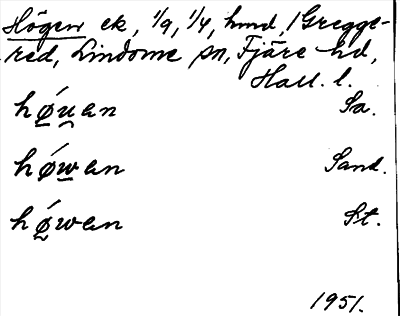 Högen ek, 1/9, 1/4, hmd, /Gregge-
red, Lindome sn, Fjäre hd,
Hall. l.
hǿu̯an Sa.
hǿwan Sand.
hǿwan St.
1951.